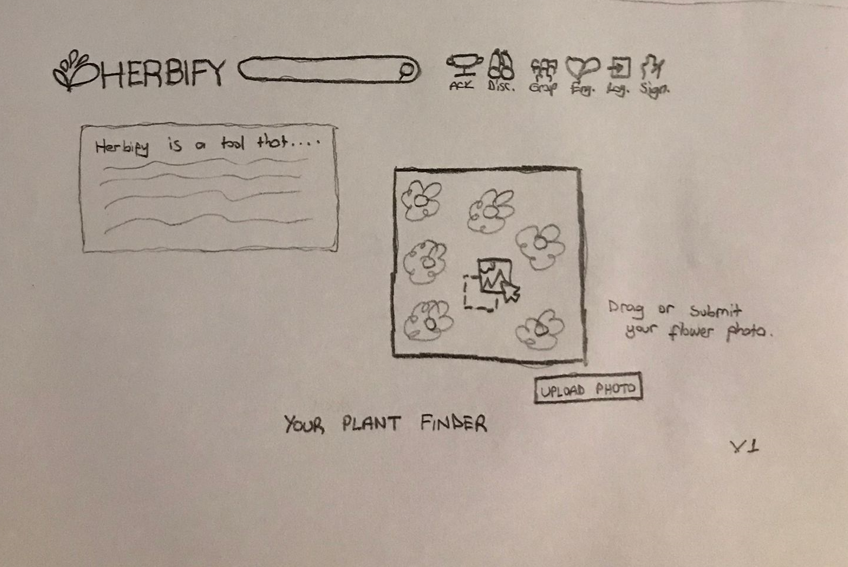 HERBIFY
ACK Disc. Grop Eng. Log. Sign.
Herbify is a tool that....
Drag or submit
your flower photo.
UPLOAD PHOTO
YOUR PLANT FINDER
V1